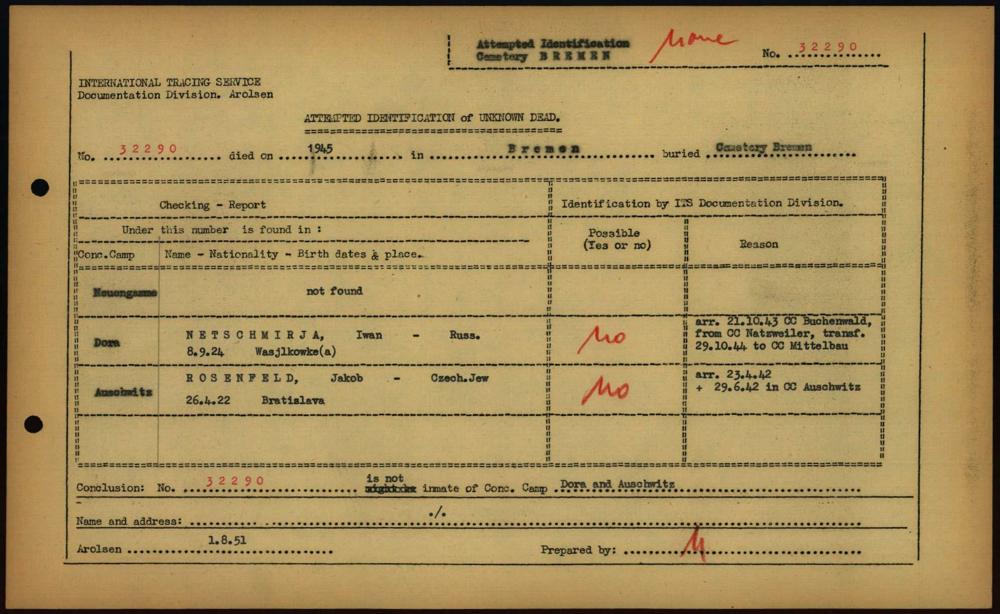 Attempted Identification
Cemetery BREMEN
None
No. 32290
INTERNATIONAL TRACING SERVICE
Documentation Division. Arolsen
ATTEMPTED IDENTIFICATION of UNKNOWN DEAD.
No. 32290 died on 1945 in Bremen buried Cemetery Bremen
Checking - Report
Identification by ITS Documentation Division.
Under this number is found in :
Possible
(Yes or no)
Reason
Conc.Camp
Name - Nationality - Birth dates & place.
Neuengamme
not found
Dora
NETSCHMIRJA, Iwan - Russ.
8.9.24 Wasjlkowke(a)
No
arr. 21.10.43 CC Buchenwald,
from CC Natzweiler, transf.
29.10.44 to CC Mittelbau
Auschwitz
ROSENFELD, Jakob - Czech.Jew
26.4.22 Bratislava
No
arr. 23.4.42
+ 29.6.42 in CC Auschwitz
is not
Conclusion: No. 32290 inmate of Conc. Camp Dora and Auschwitz
Name and address: ./.
Arolsen 1.8.51
Prepared by: